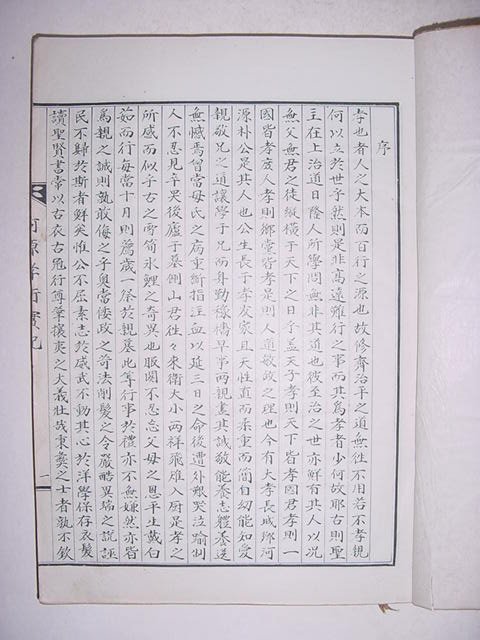 序
孝也者人之大本而百行之源也故修齊治平之道無往不用若不孝親
何以立於世乎然則是非高遠難行之事而其爲孝者少何故耶古則聖
主在上治道日隆人所學問無非其道也彼至治之世亦鮮有其人以況
無父無君之徒縱橫于天下之日乎盖天子孝則天下皆孝國君孝則一
國皆孝家人孝則鄕黨皆孝是則人道敏政之理也今有大孝長城鄕河
源朴公是其人也公生長于孝友家且天性直而柔重而簡自幼能知愛
親敬兄之道讓學于兄而身勤稼穡早事兩親盡其誠敬能養志軆養送
無憾焉曾當母氏之病重斷指注血以延三日之命後遭外艱哭泣踰制
人不忍見卒哭後廬于墓側山君往々來衛大小兩祥飛雉入厨是孝之
所感而似乎古之雪筍氷鯉之奇異也服闋不忍忘父母之恩平生戴白
茹而行每當十月則薦歲一祭於親墓此等行事於禮亦不無嫌然亦皆
爲親之誠則孰敢侮之乎奥當倭政之苛法削髮之令嚴酷異端之說誣
民不歸於斯者鮮矣惟公不屈素志於威武不動其心於洋學保存衣髮
讀聖賢書常以古衣古冠行尊華攘夷之大義壯哉秉彝之士者孰不欽
河源孝行實記
一